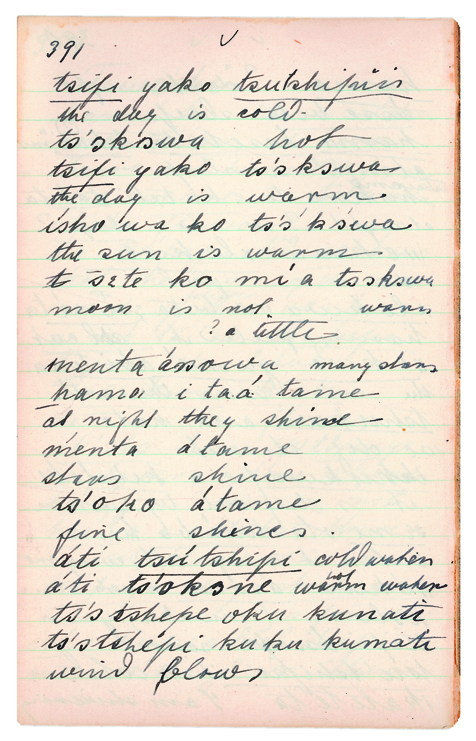 391
tsifi yako tsutshipiis
the day is cold.
ts'skswa hot
tsifi yako ts'skswa
the day is warm
isho wa ko ts's'kswa
the sun is warm
ko mí a tsskswa
moon is not warm
? a little
menta ássowa many stars
hama i taá tame
at night they shine
menta átame
stars shine
ts'oho átame
fire shines.
áti tsutshipi cold water
áti ts'oksne warm water
hot
ts's tshepe oku kunati
ts'stshépi kuku kumati
wind blows